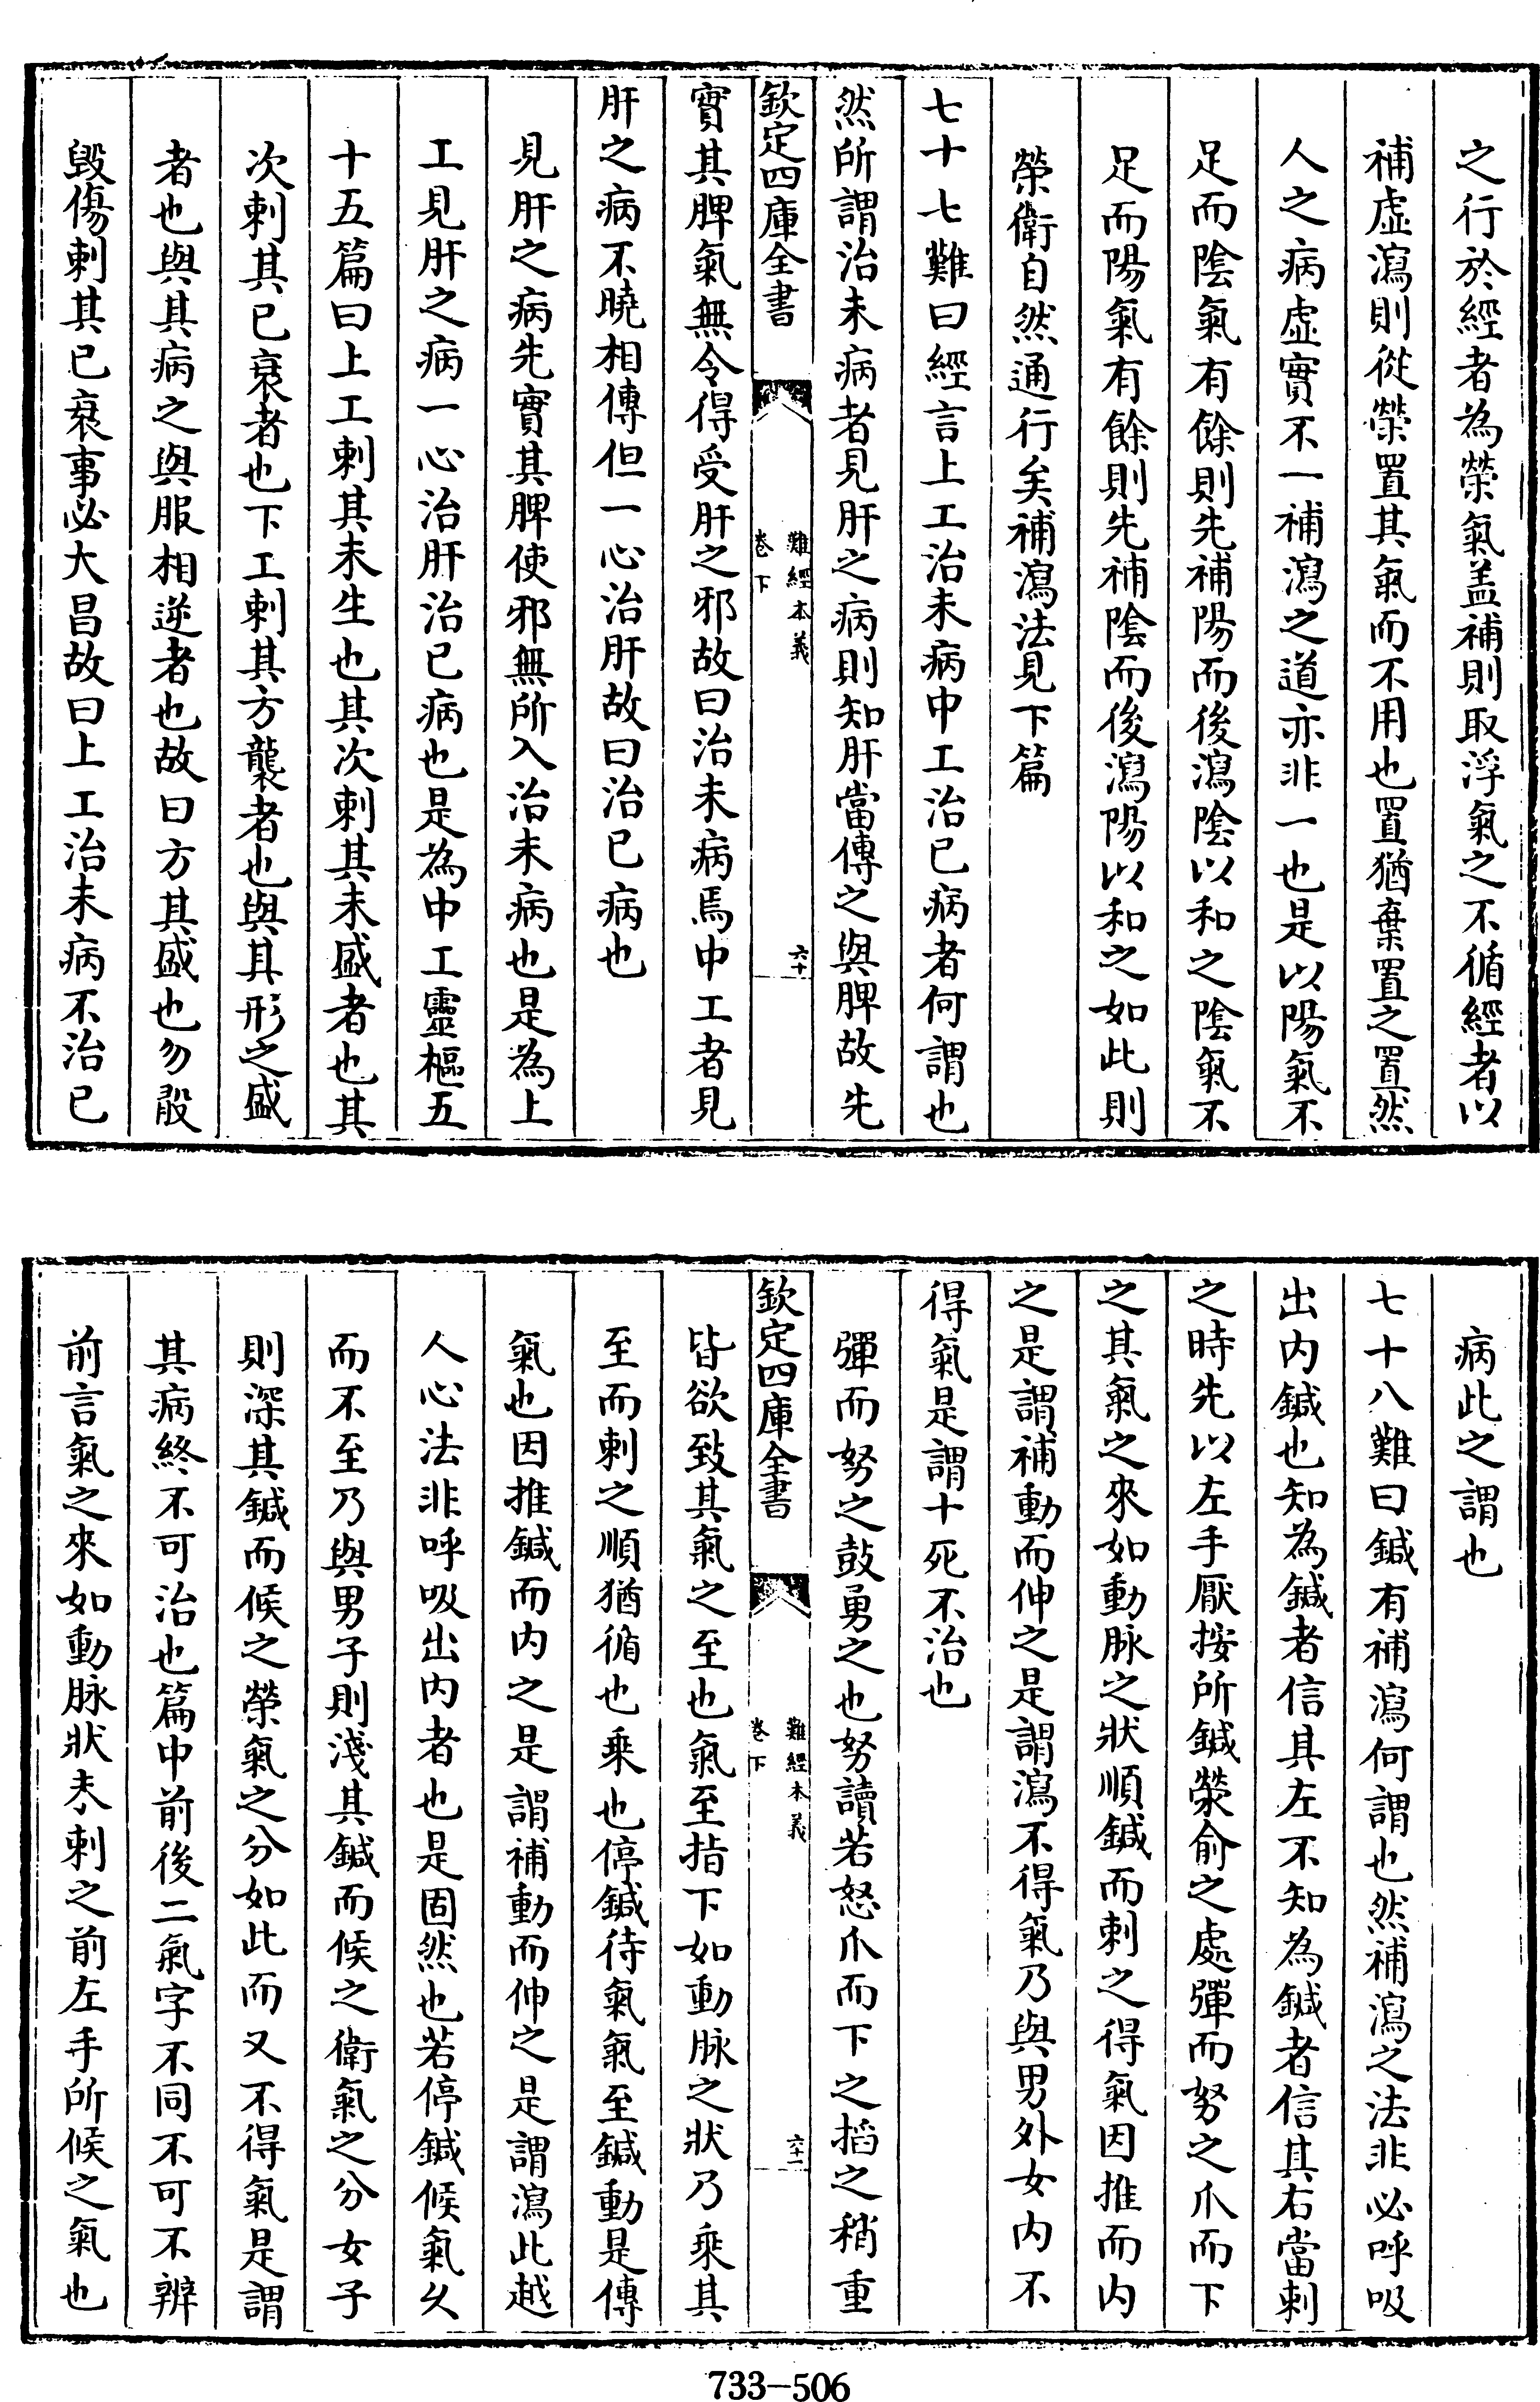 之行於經者為榮氣盖補則取浮氣之不循經者以
補虛瀉則從榮置其氣而不用也置猶棄置之置然
人之病虛實不一補瀉之道亦非一也是以陽氣不
足而陰氣有餘則先補陽而後瀉陰以和之陰氣不
足而陽氣有餘則先補陰而後瀉陽以和之如此則
榮衛自然通行矣補瀉法見下篇
七十七難曰經言上工治未病中工治已病者何謂也
然所謂治未病者見肝之病則知肝當傳之與脾故先
欽定四庫全書
難經本義
卷下
六十
實其脾氣無令得受肝之邪故曰治未病焉中工者見
肝之病不曉相傳但一心治肝故曰治已病也
見肝之病先實其脾使邪無所入治未病也是為上
工見肝之病一心治肝治已病也是為中工靈樞五
十五篇曰上工刺其未生也其次刺其未盛者也其
次刺其已衰者也下工刺其方襲者也與其形之盛
者也與其病之與服相逆者也故曰方其盛也勿敢
毀傷刺其已衰事必大昌故曰上工治未病不治已
病此之謂也
七十八難曰鍼有補瀉何謂也然補瀉之法非必呼吸
出內鍼也知為鍼者信其左不知為鍼者信其右當刺
之時先以左手厭按所鍼滎俞之處彈而努之爪而下
之其氣之來如動脉之狀順鍼而刺之得氣因推而內
之是謂補動而伸之是謂瀉不得氣乃與男外女內不
得氣是謂十死不治也
彈而努之鼓勇之也努讀若怒爪而下之掐之稍重
欽定四庫全書
難經本義
卷下
六十一
皆欲致其氣之至也氣至指下如動脉之狀乃乘其
至而刺之順猶循也乘也停鍼待氣氣至鍼動是傳
氣也因推鍼而內之是謂補動而伸之是謂瀉此越
人心法非呼吸出內者也是固然也若停鍼候氣久
而不至乃與男子則淺其鍼而候之衛氣之分女子
則深其鍼而候之榮氣之分如此而又不得氣是謂
其病終不可治也篇中前後二氣字不同不可不辨
前言氣之來如動脉狀未刺之前左手所候之氣也
733-506